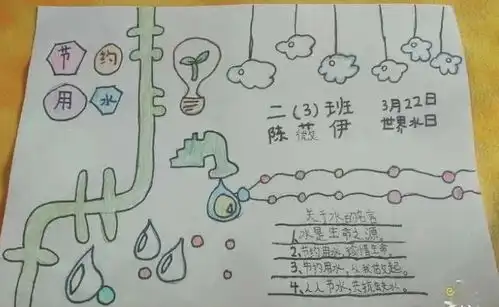 节约
用水
二(3)班
陈薇伊
3月22日
世界水日
关于水的名言
1、水是生命之源。
2、节约用水,珍惜生命。
3、节约用水,从我做起。
4、人人节水,共我